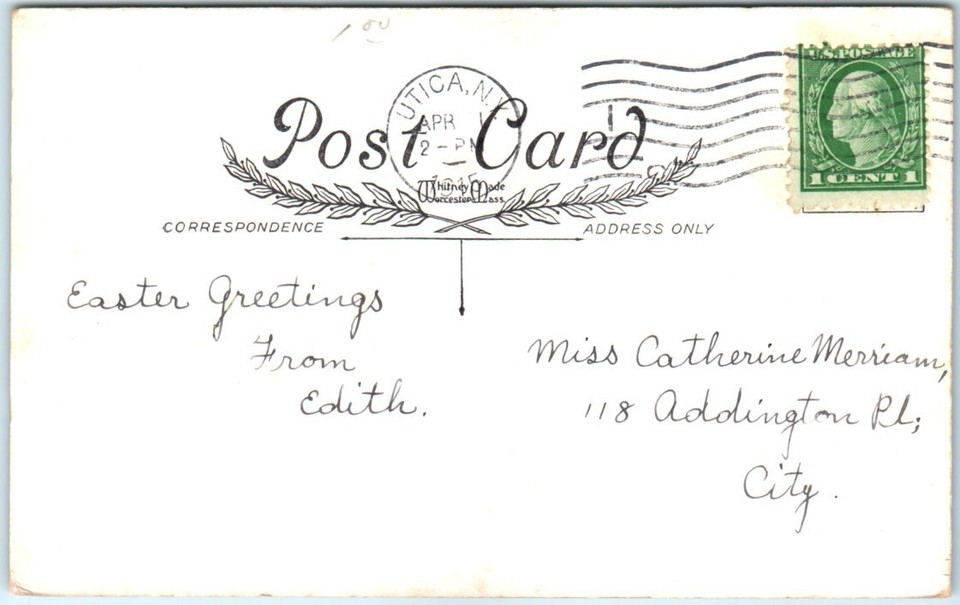 1.00
U.S. POSTAGE
1 CENT 1
UTICA, N.Y.
APR 1
2 - PM
1915
Post Card
Whitney Made
Worcester Mass.
CORRESPONDENCE
ADDRESS ONLY
Easter Greetings
From
Edith.
Miss Catherine Merriam,
118 Addington Pl;
City.